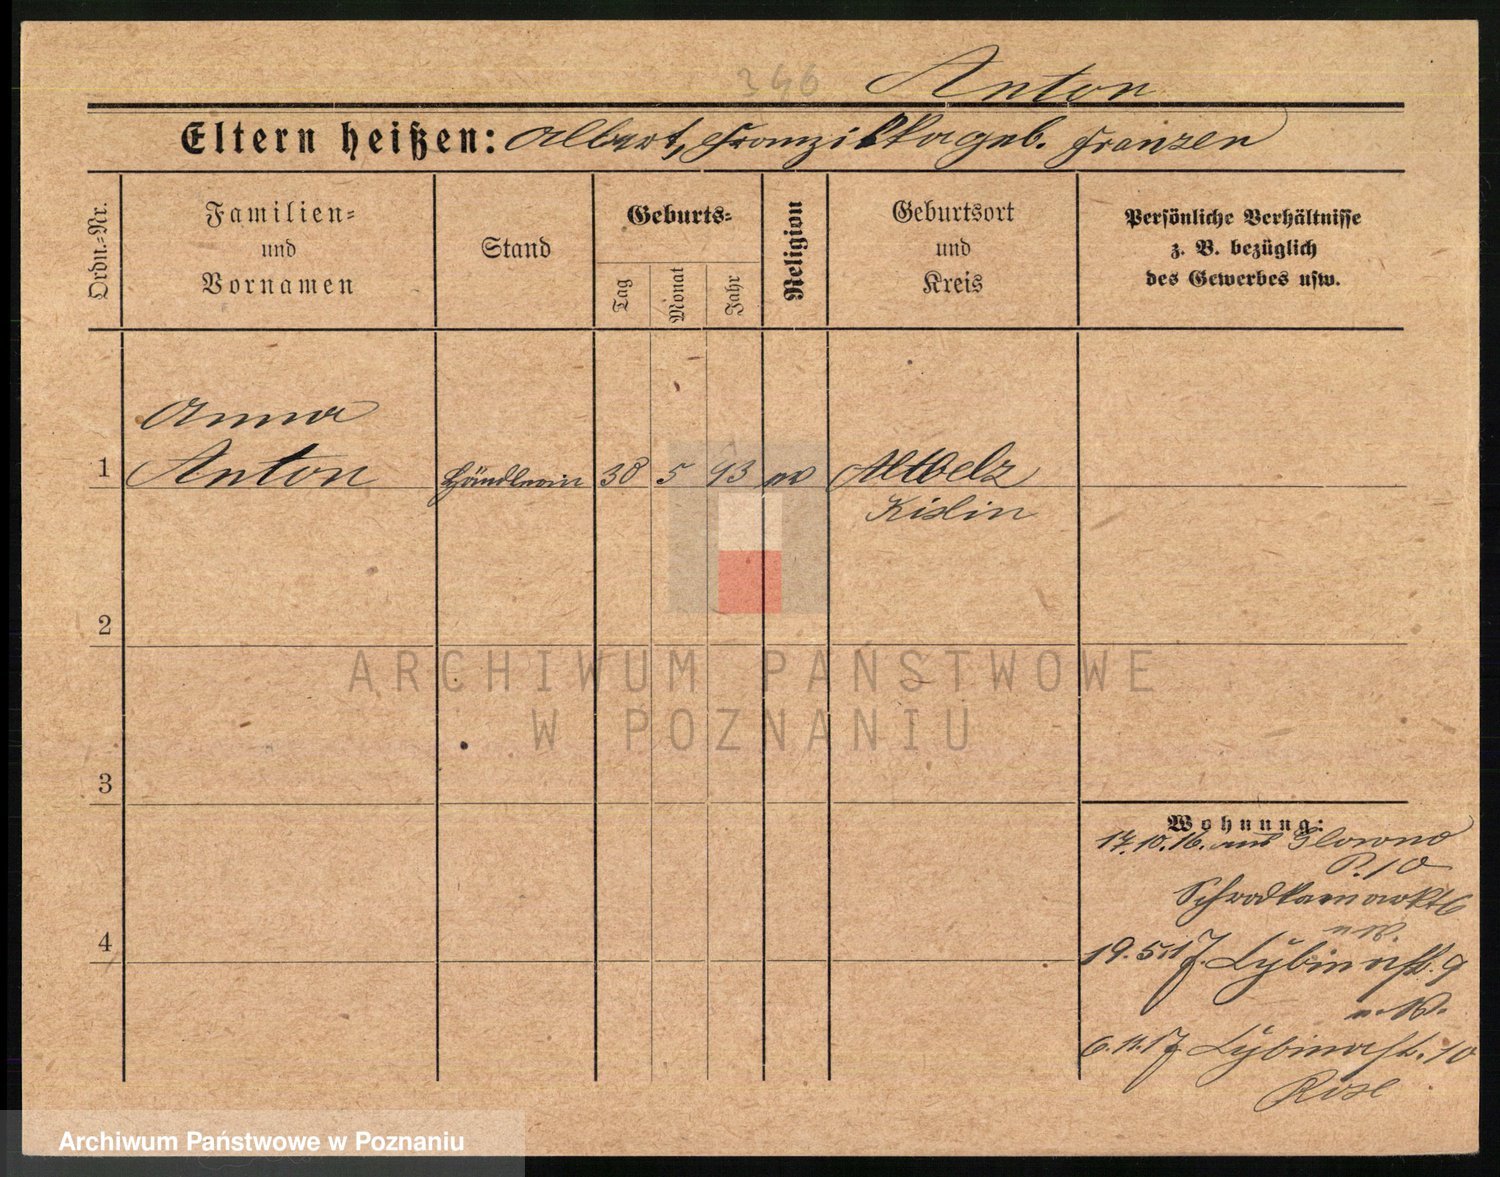 346 Anton
Eltern heißen: Albert, Franziska geb. Franzen
Ordn.-Nr.
Familien-
und
Vornamen
Stand
Geburts-
Tag
Monat
Jahr
Religion
Geburtsort
und
Kreis
Persönliche Verhältnisse
z. B. bezüglich
des Gewerbes usw.
Anna
1 Anton Händlerin 30 5 93 Altbelz
Köslin
2
ARCHIWUM PAŃSTWOWE
W POZNANIU
3
Wohnung:
17.10.16. aus Glowno
P. 10
Schrodkamarkt 6
19.5.17. Cybinastr. 9
6.11.17 Cybinastr. 10
4
Archiwum Państwowe w Poznaniu